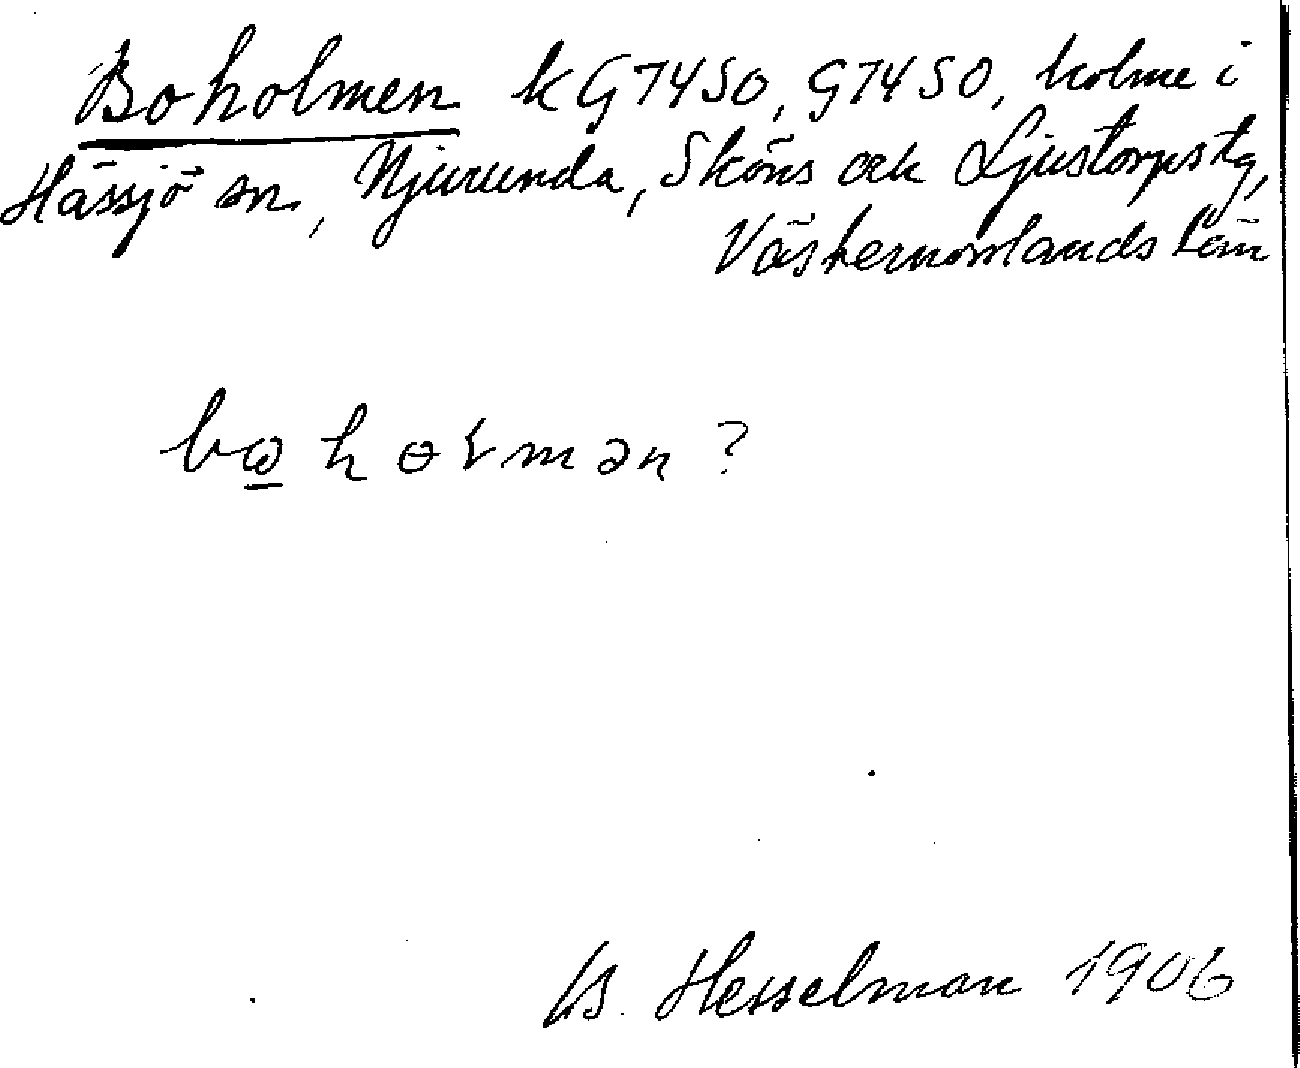 Boholmen k G7450, G7450, holme i
Hässjö sn, Njurunda, Sköns och Ljustorps tg,
Västernorrlands län
bɷhɵɽmən?
B. Hesselman 1906